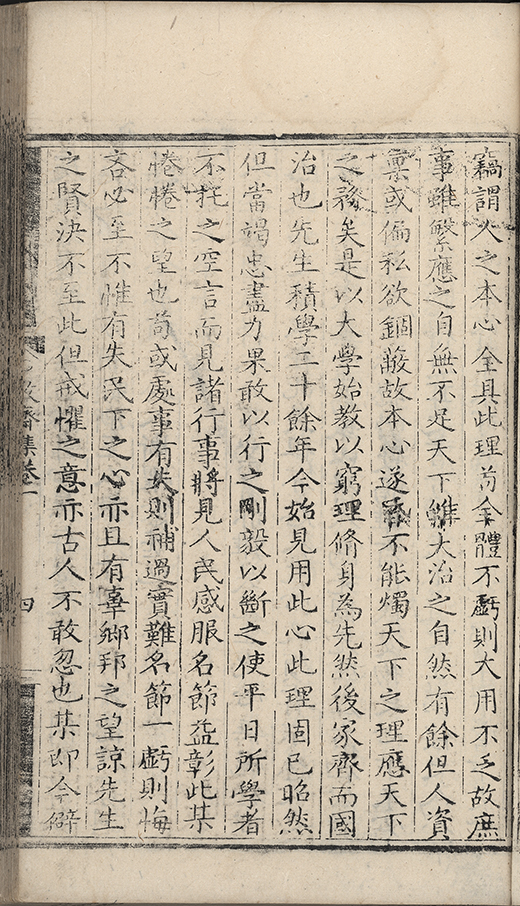 竊謂人之本心全具此理苟全體不虧則大用不乏故庶
事雖繁應之自無不足天下雖大治之自然有餘但人資
稟或偏私欲錮蔽故本心遂昏不能燭天下之理應天下
之務矣是以大學始教以窮理脩身為先然後家齊而國
治也先生積學二十餘年今始見用此心此理固已昭然
但當竭忠盡力果敢以行之剛毅以斷之使平日所學者
不托之空言而見諸行事將見人民感服名節益彰此某
惓惓之望也苟或處事有失則補過實難名節一虧則悔
吝必至不惟有失民下之心亦且有辜鄉邦之望諒先生
之賢決不至此但戒懼之意亦古人不敢忽也某即今僻
敬齋集卷一
四